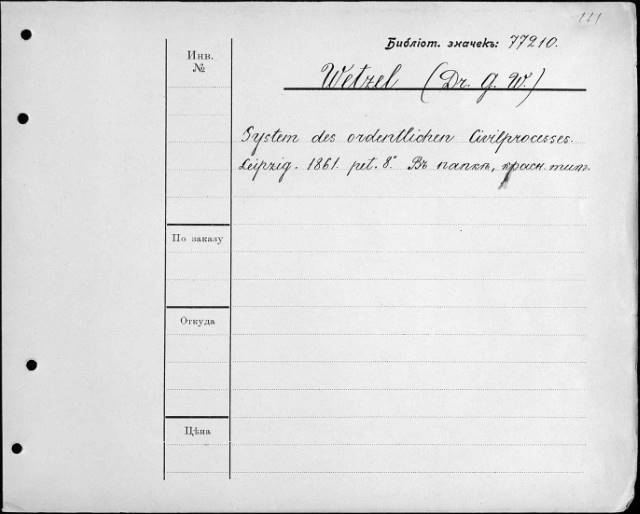 111
Библіот. значекъ: 77210.
Инв. №
Wetzel (Dr. G. W.)
System des ordentlichen Civilprocesses.
Leipzig. 1861. pet. 8.° Въ папкѣ, красн. тит.
По заказу
Откуда
Цѣна